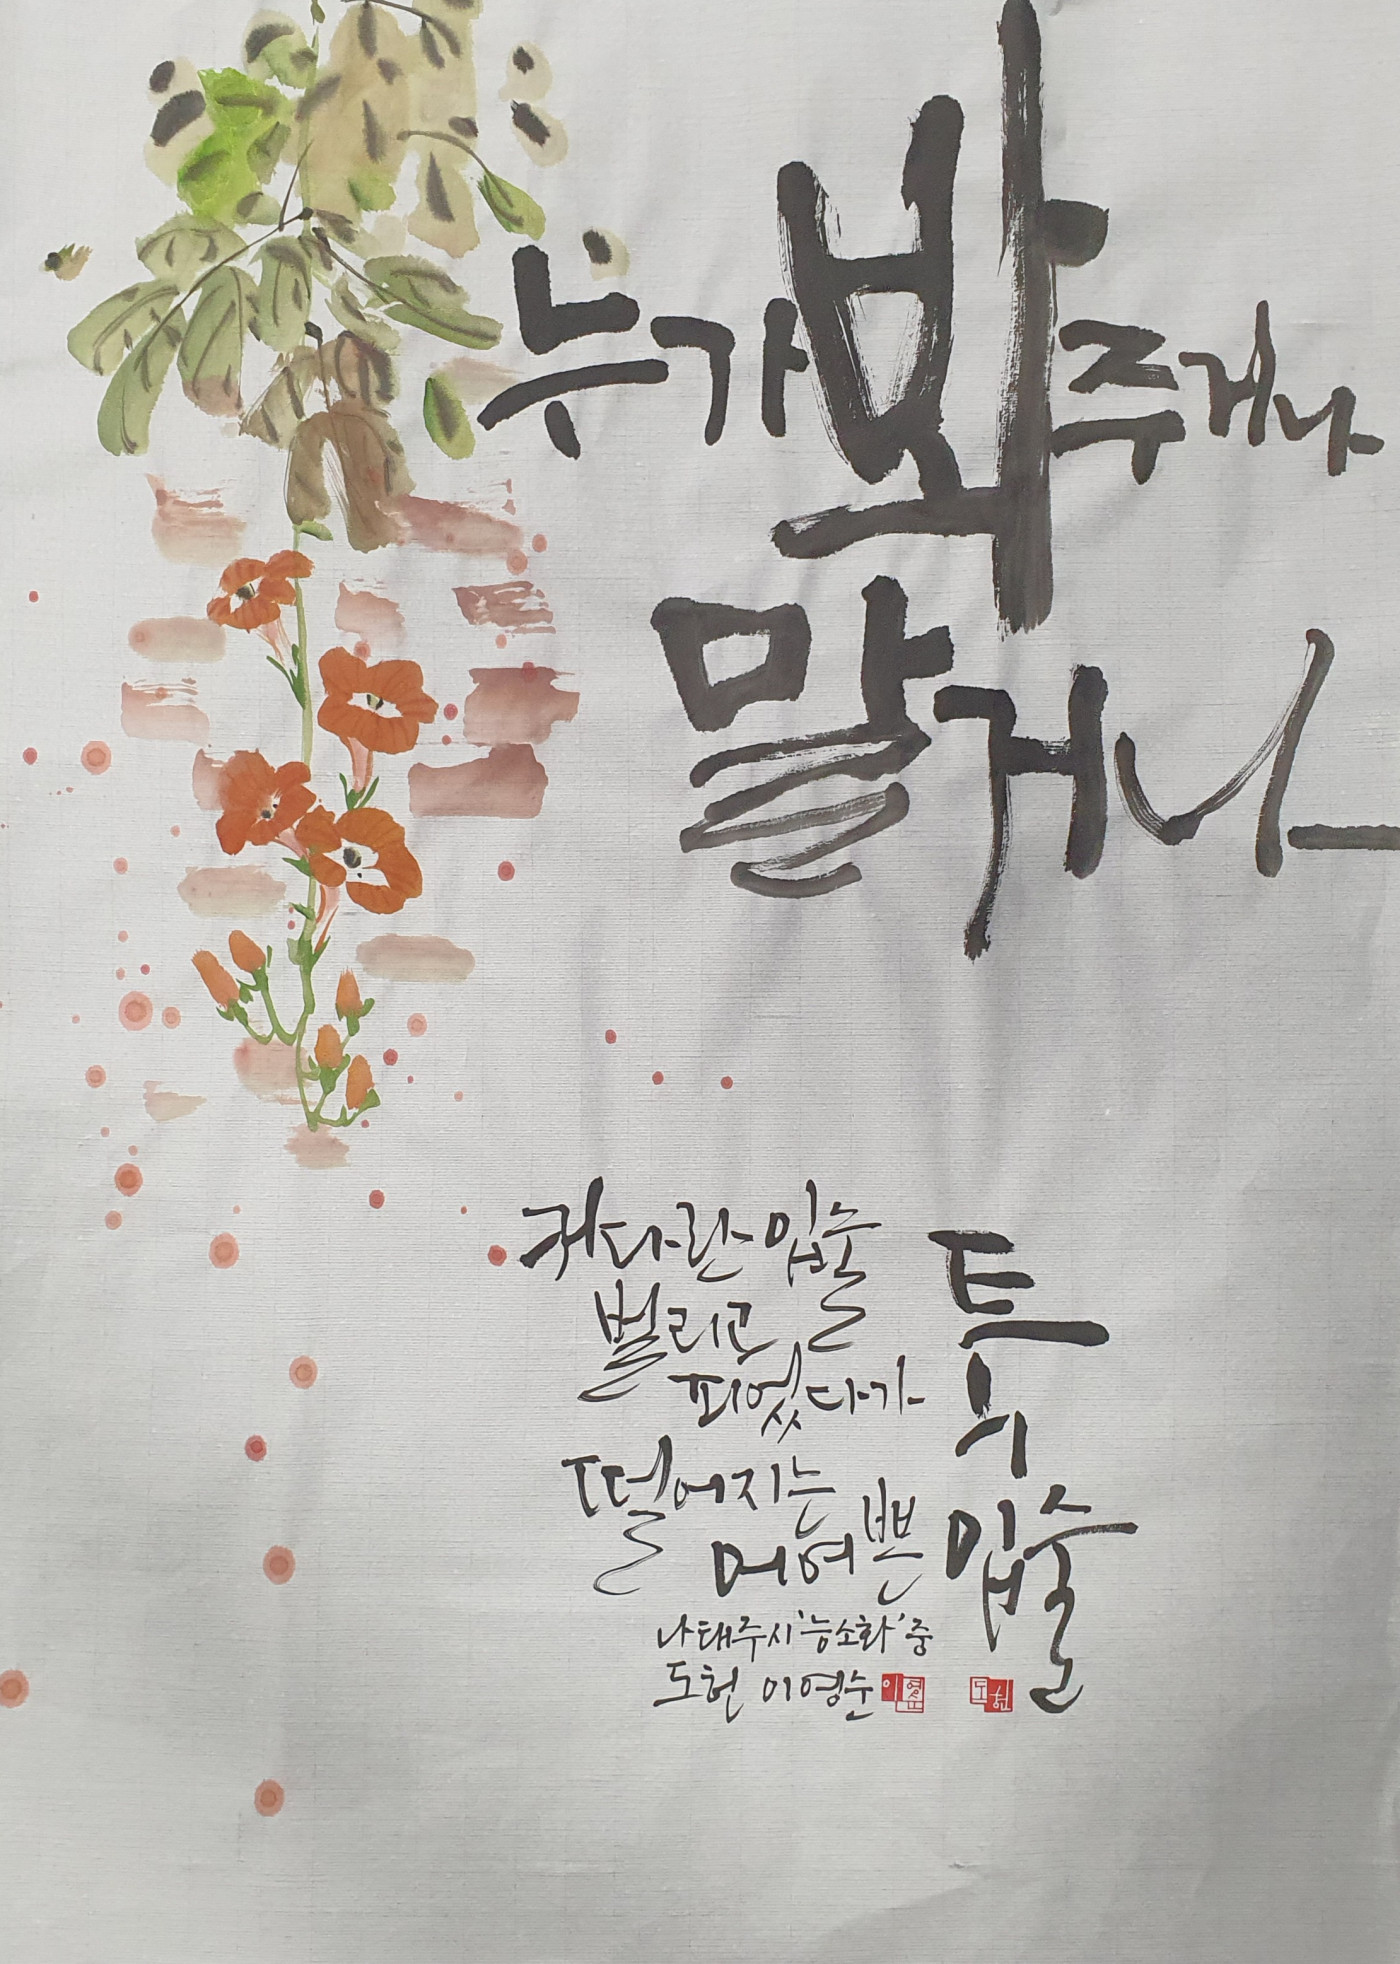 누가 봐주거나
말거나
커다란 입술
벌리고
피었다가
떨어지는
어여쁜
입술
나태주시 '능소화' 중
도헌 이영순 이영순 도헌